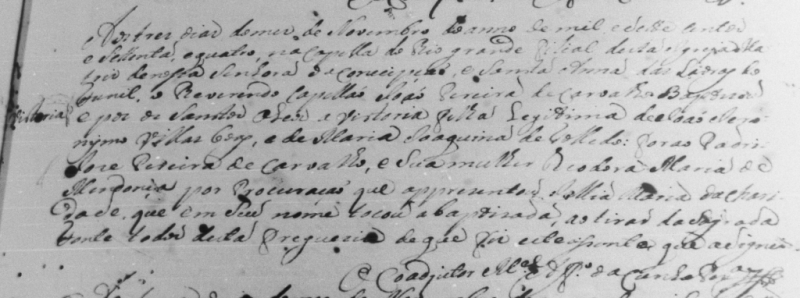 Aos tres dias do mes de Novembro do anno de mil e sete centos
e Settenta, e quatro, na Capella do Rio grande filial desta Igreja Ma
triz de nossa Senhora da Conceiçaõ, e Santa Anna das Lavras do
funil, o Reverendo Capellaõ Joaõ Pereira de Carvalho Baptizou
Victoria
e poz os Santos oleos a Victoria filha Legitima de Joaõ Iero
nymo Villas boas, e de Maria Joaquina de Tolledo: foraõ Padri
Jose Pereira de Carvalho, e Sua mulher Teodora Maria de
Mendonça por Procuraçaõ que appresentou Maria da Chari
dade, que em Seu nome tocou a baptizada, ao tirar da Sagrada
fonte todos desta freguezia de que fiz este assento, que a Signei
O Coadjutor da Cunha